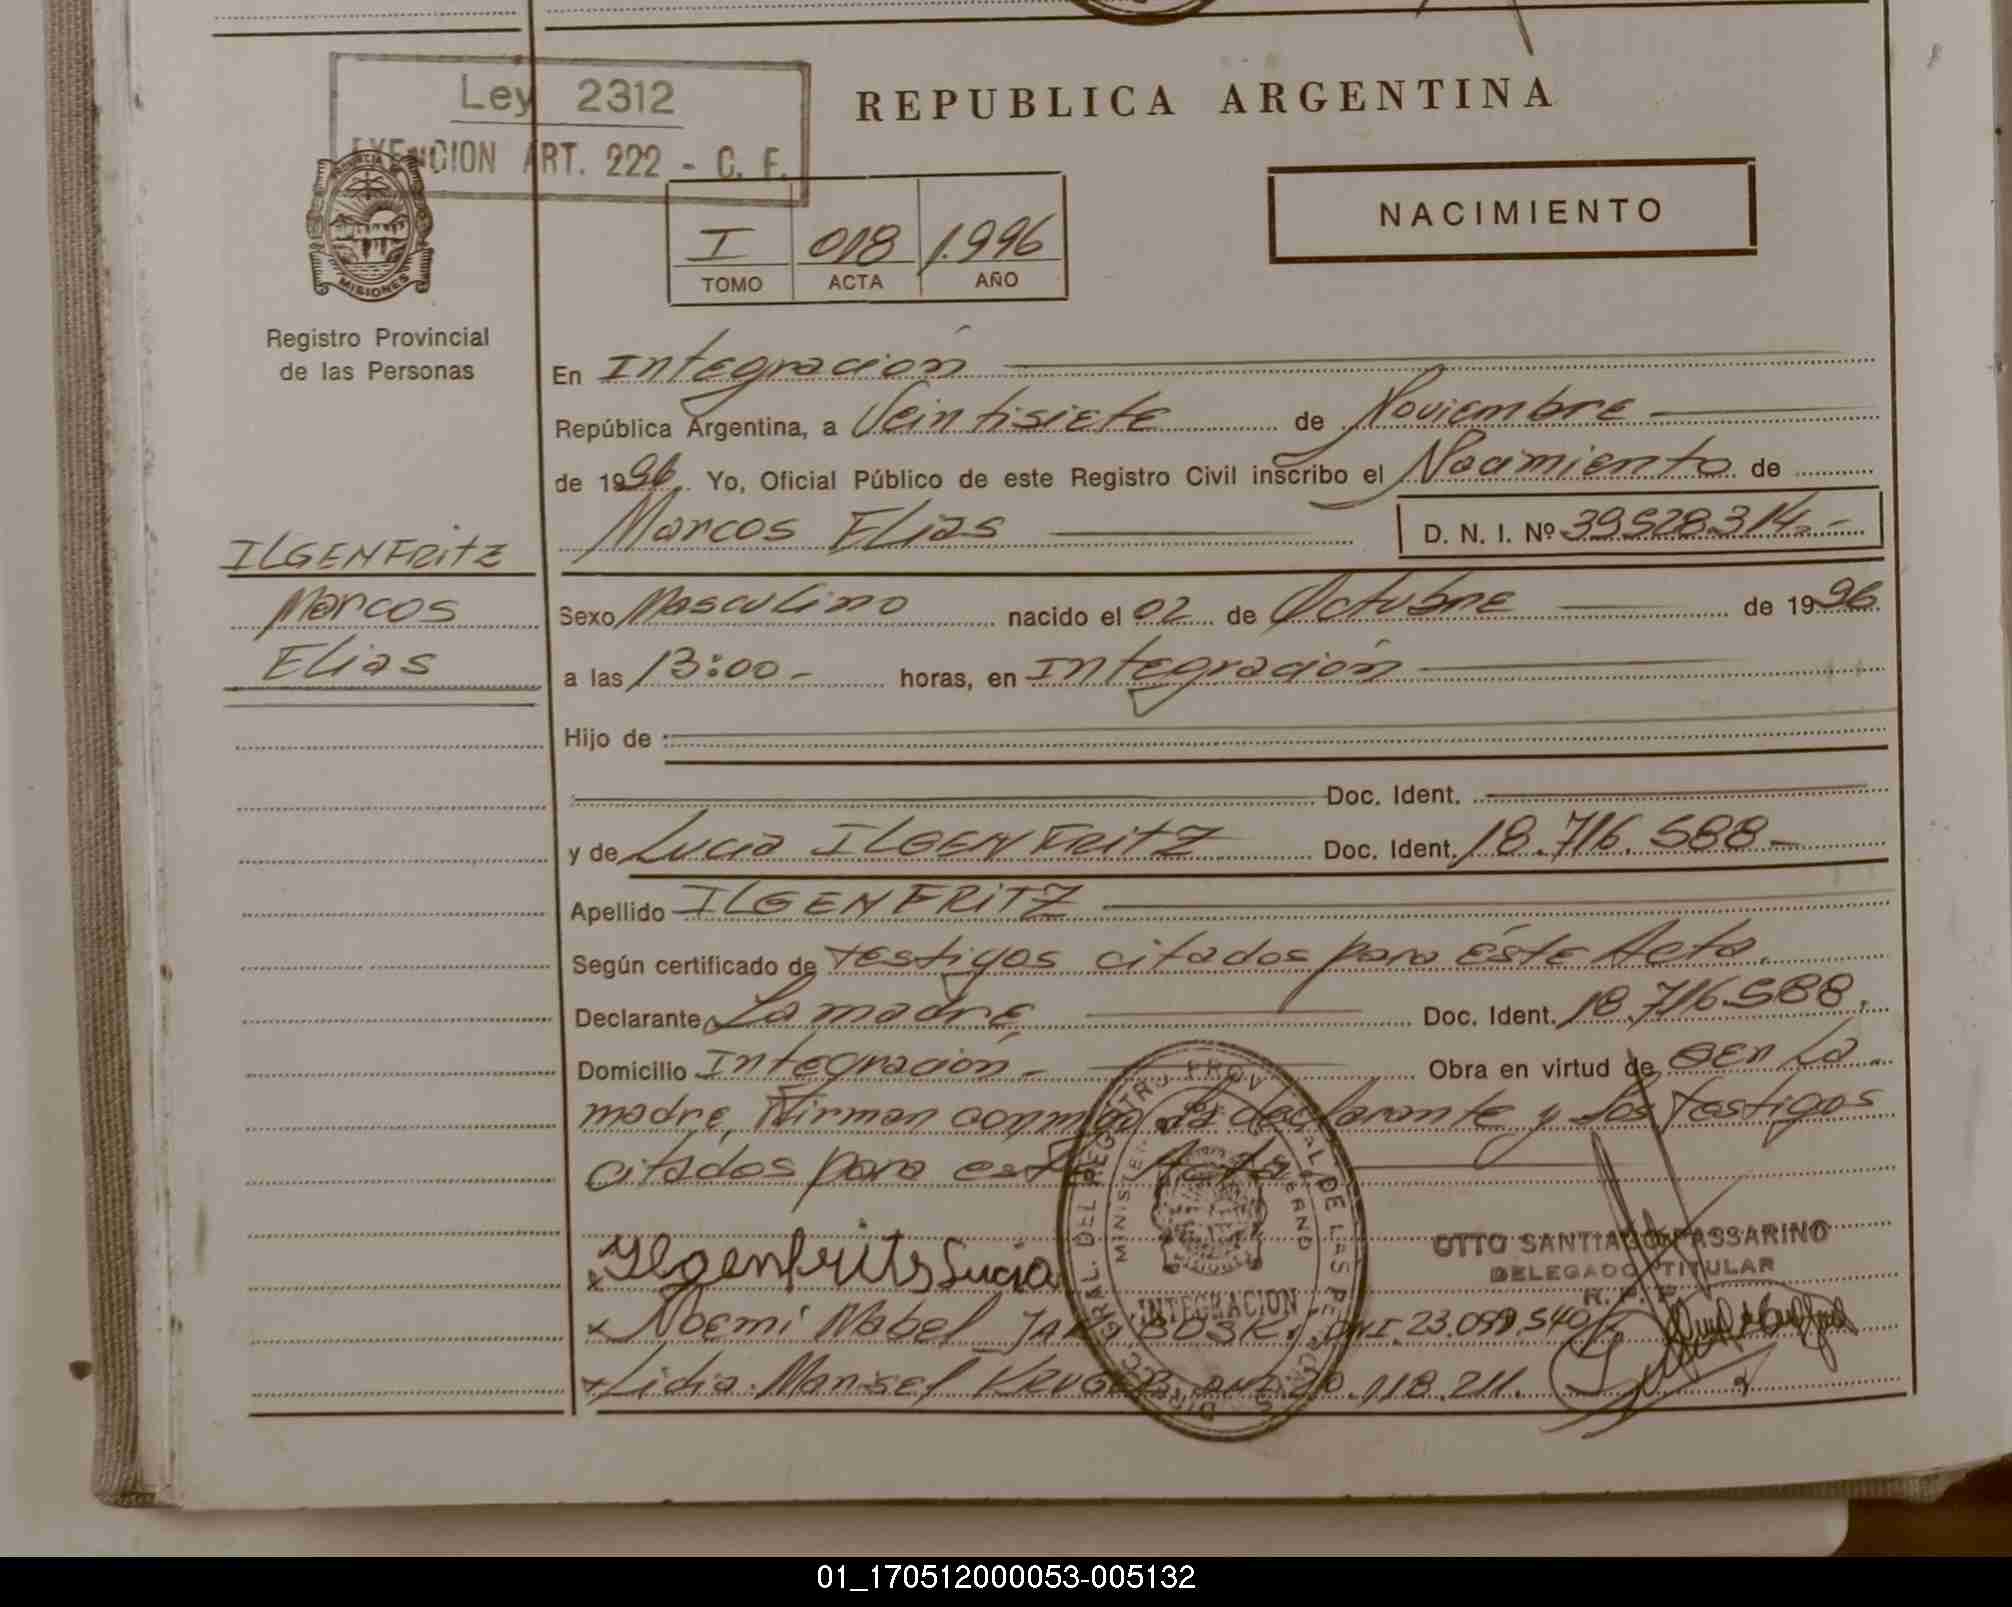 Ley 2312
EXENCION ART. 222 - C. F.
REPUBLICA ARGENTINA
NACIMIENTO
I 018 1.996
TOMO ACTA AÑO
PROVINCIA DE MISIONES
Registro Provincial
de las Personas
ILGENFRITZ
Marcos
Elias
En Integración
República Argentina, a Veintisiete de Noviembre
de 1996. Yo, Oficial Público de este Registro Civil inscribo el Nacimiento de
Marcos Elias D. N. I. Nº 39.528.314.-
Sexo Masculino nacido el 02 de Octubre de 1996
a las 13:00- horas, en Integración
Hijo de
Doc. Ident.
y de Lucia ILGENFRITZ Doc. Ident. 18.716.588-
Apellido ILGENFRITZ
Según certificado de testigos citados para éste Acta.
Declarante La madre, Doc. Ident. 18.716.588,
Domicilio Integración- Obra en virtud de ser la
madre, Firman conmigo la declarante y los testigos
citados para este Acta
x Ilgenfrits Lucia
x Noemi Mabel DNI. 23.099.540
x Lidia Marisel KRUGER 118.211.
OTTO SANTIAGO PASSARINO
DELEGADO TITULAR
R. P. P.
DIREC. GRAL. DEL REGISTRO PROVINCIAL DE LAS PERSONAS
MINISTERIO DE GOBIERNO
INTEGRACION
01_170512000053-005132